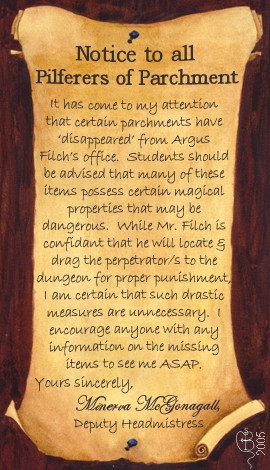 Notice to all
Pilferers of Parchment
It has come to my attention
that certain parchments have
'disappeared' from Argus
Filch's office.  Students should
be advised that many of these
items possess certain magical
properties that may be
dangerous.  While Mr. Filch is
confidant that he will locate &
drag the perpetrator/s to the
dungeon for proper punishment,
I am certain that such drastic
measures are unnecessary.  I
encourage anyone with any
information on the missing
items to see me ASAP.
Yours sincerely,
Minerva McGonagall,
Deputy Headmistress
2005